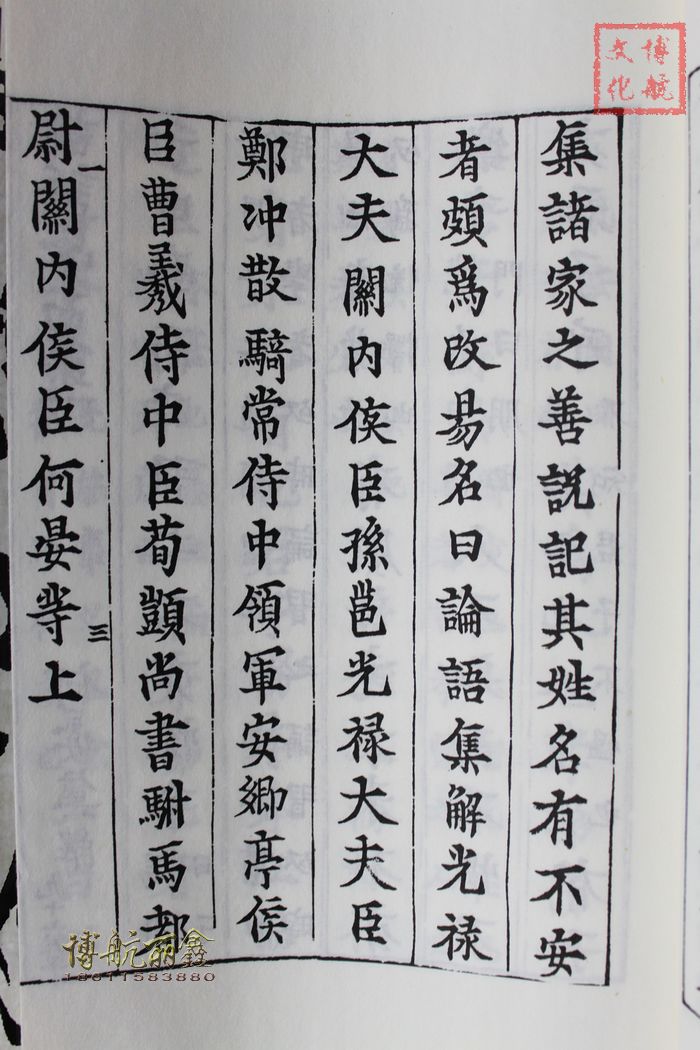 集諸家之善說記其姓名有不安
者頗爲改易名曰論語集解光祿
大夫關內侯臣孫邕光祿大夫臣
鄭冲散騎常侍中領軍安鄉亭侯
臣曹羲侍中臣荀顗尚書駙馬都
三
尉關內侯臣何晏等上
一
博航文化
博航丽鑫
18611583880